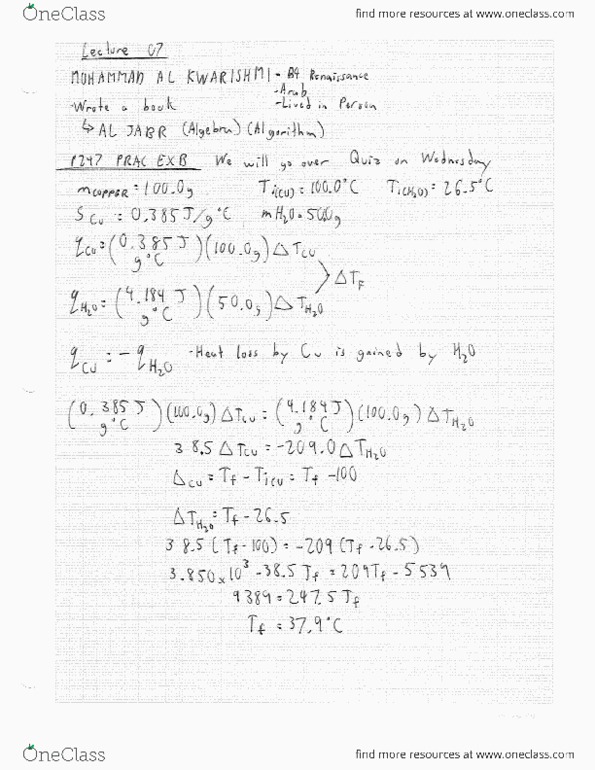 OneClass find more resources at www.oneclass.com
Lecture 07
MOHAMMAD AL KWARISHMI - B4 Renaissance
-Arab
-Wrote a book -Lived in Person
↳ AL JABR (Algebra) (Algorithm)
P247 PRAC EX B We will go over Quiz on Wednesday
mCOPPER = 100.0g Ti(Cu) = 100.0°C Ti(H₂O) = 26.5°C
S Cu = 0.385 J/g°C mH₂O = 50.0g
qCu = (0.385 J / g°C)(100.0g) ΔTCu
> ΔTF
qH₂O = (4.184 J / g°C)(50.0g) ΔTH₂O
qCu = -qH₂O -Heat loss by Cu is gained by H₂O
(0.385 J / g°C)(100.0g) ΔTCu = (4.184 J / g°C)(100.0g) ΔTH₂O
38.5 ΔTCu = -209.0 ΔTH₂O
ΔCu = Tf - TiCu = Tf -100
ΔTH₂O = Tf - 26.5
38.5 (Tf - 100) = -209 (Tf - 26.5)
3.850 x 10³ - 38.5 Tf = 209Tf - 5539
9389 = 247.5 Tf
Tf = 37.9°C
OneClass find more resources at www.oneclass.com